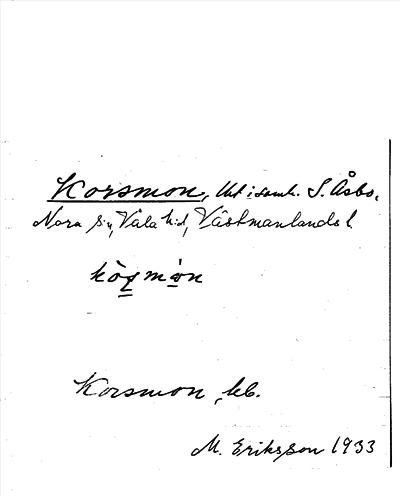 Korsmon, lht i samh. S. Åsbo,
Nora sn, Våla hd, Västmanlands l
kòşmòn
Korsmon, kb.
M. Eriksson 1933